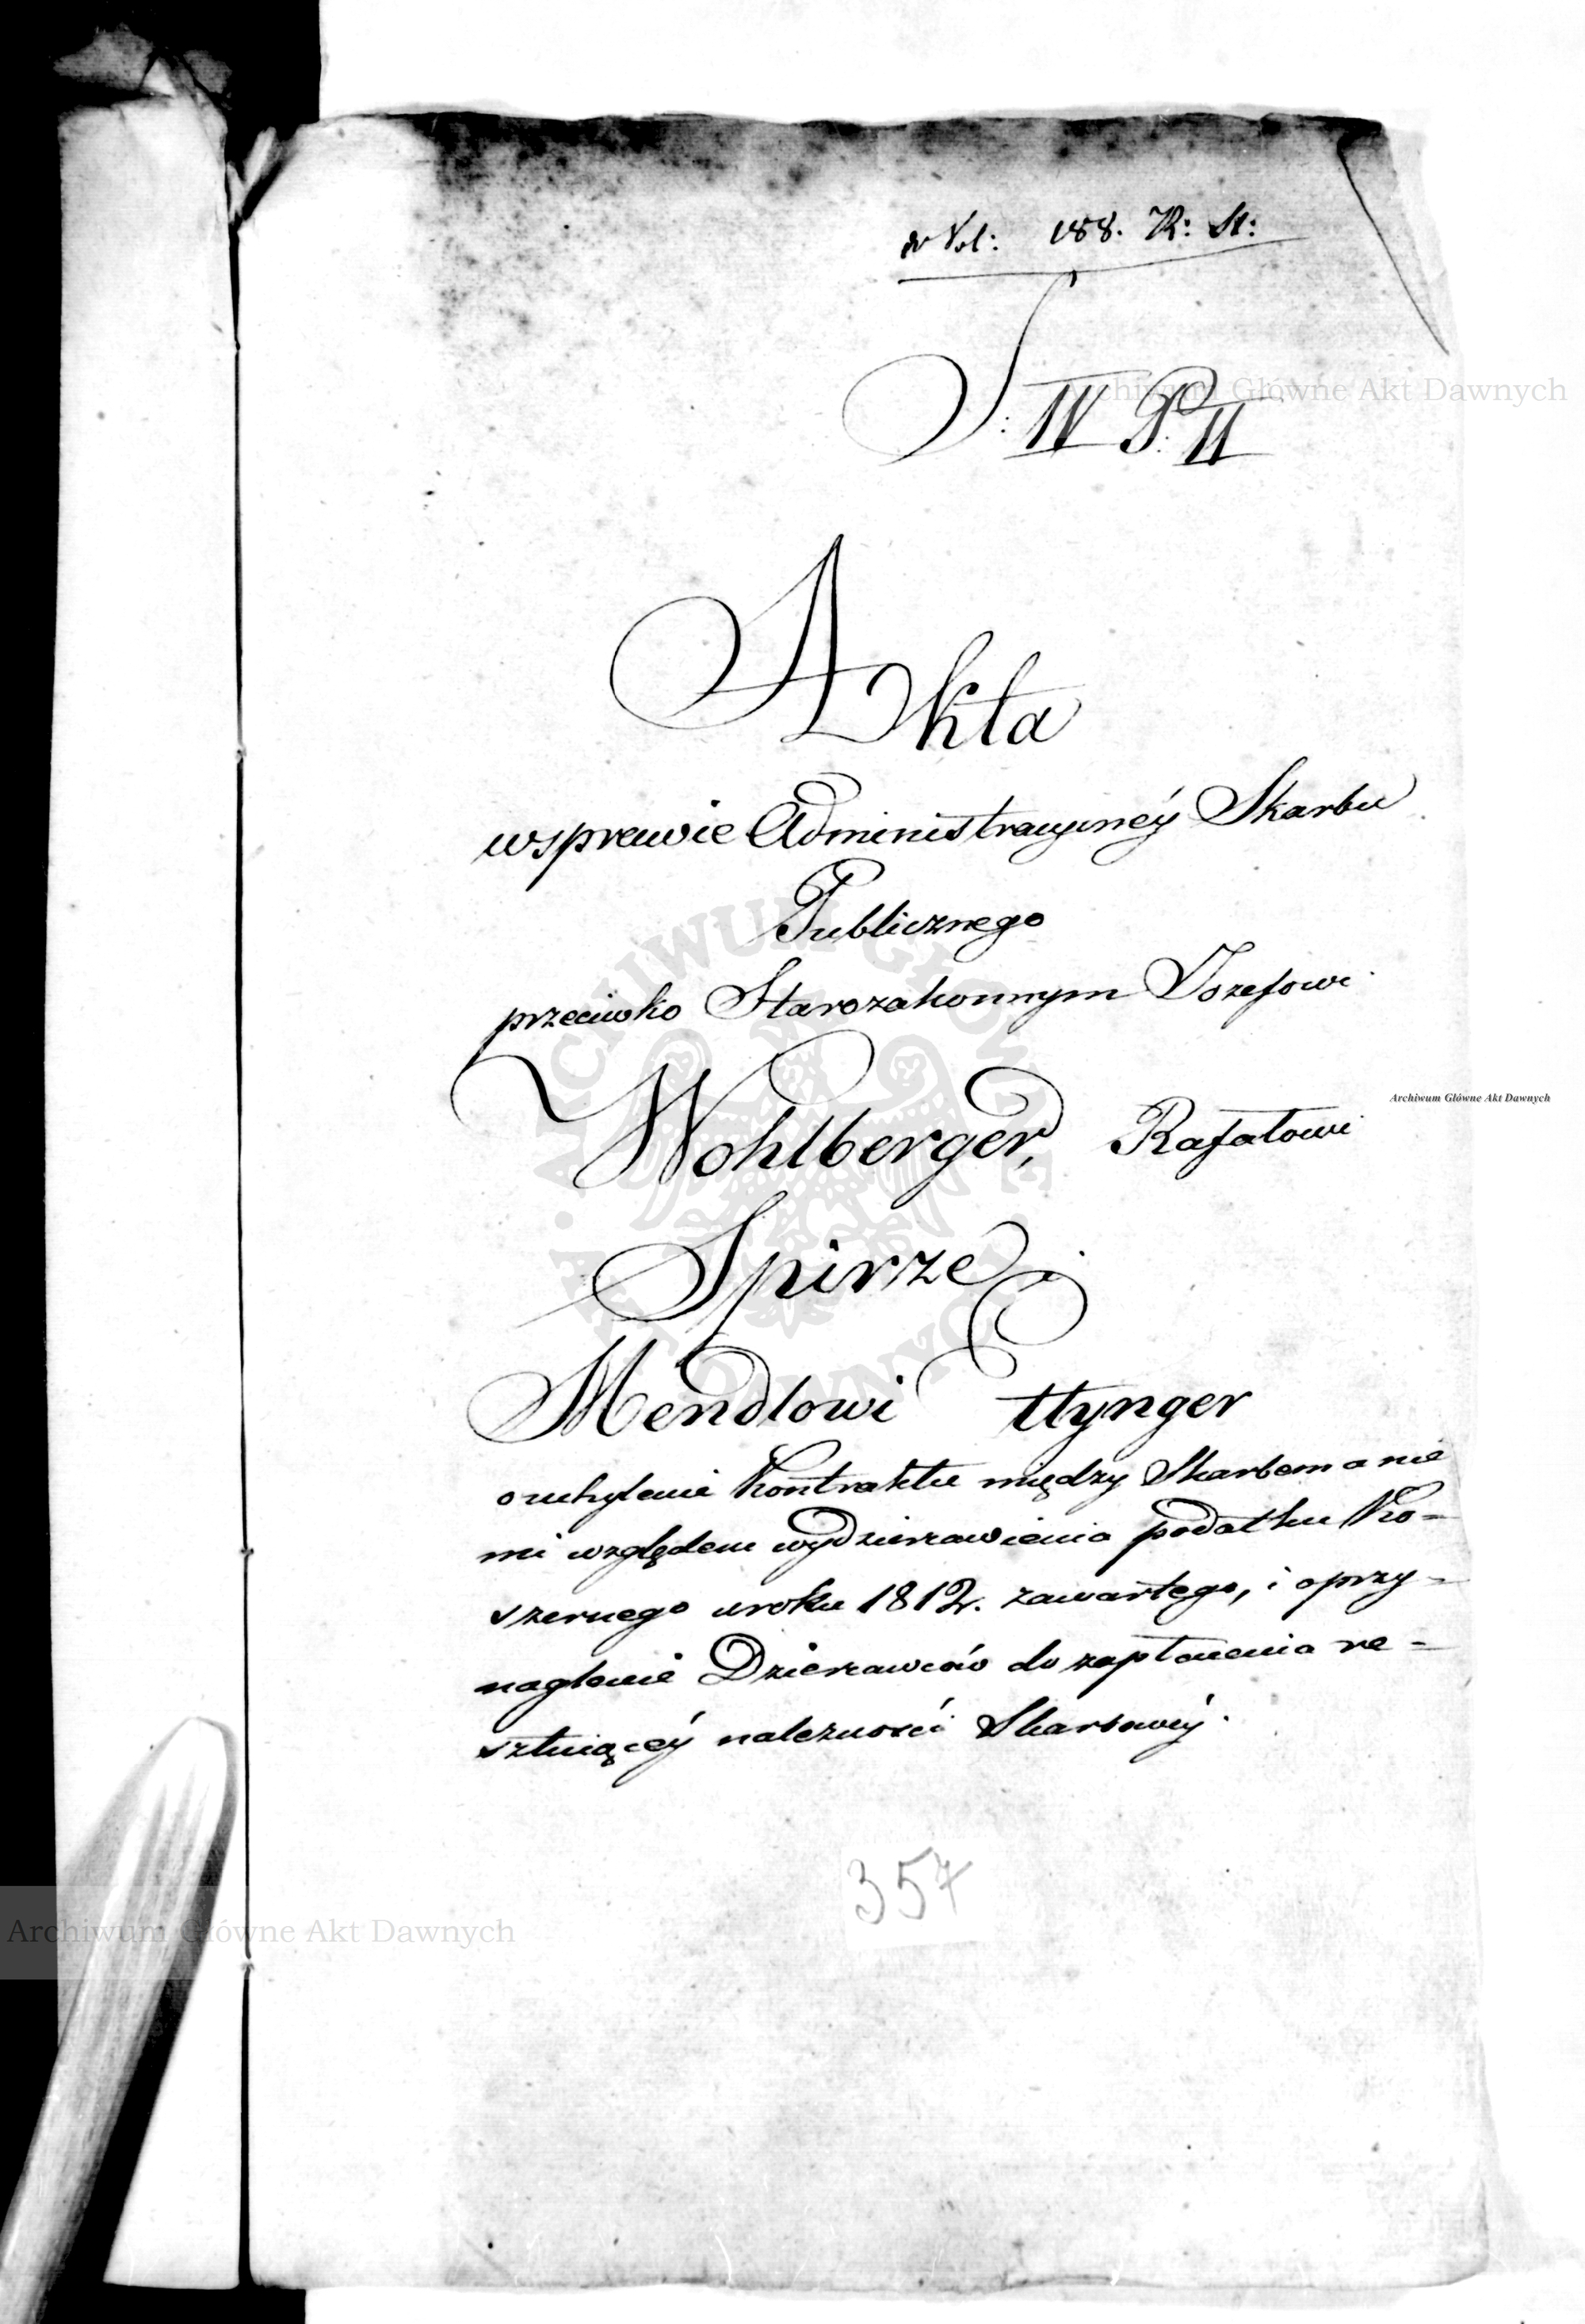 w Vol: 188. R: St:
S: IV P: II
Akta
wsprawie Administracyiney Skarbu
Publicznego
przeciwko Starozakonnym Jozefowi
Wohlberger, Rafałowi
Spirze i
Mendlowi Ettynger
o uchylenie Kontraktu między Skarbem a nie
mi względem wydzierzawienia podatku Ko=
szernego wroku 1812r. zawartego, i oprzy=
naglenie Dzierzawców do zapłacenia re=
sztuiącéy należności Skarbowéy.
357
Archiwum Główne Akt Dawnych
Archiwum Główne Akt Dawnych
Archiwum Główne Akt Dawnych
ARCHIWUM GŁÓWNE AKT DAWNYCH